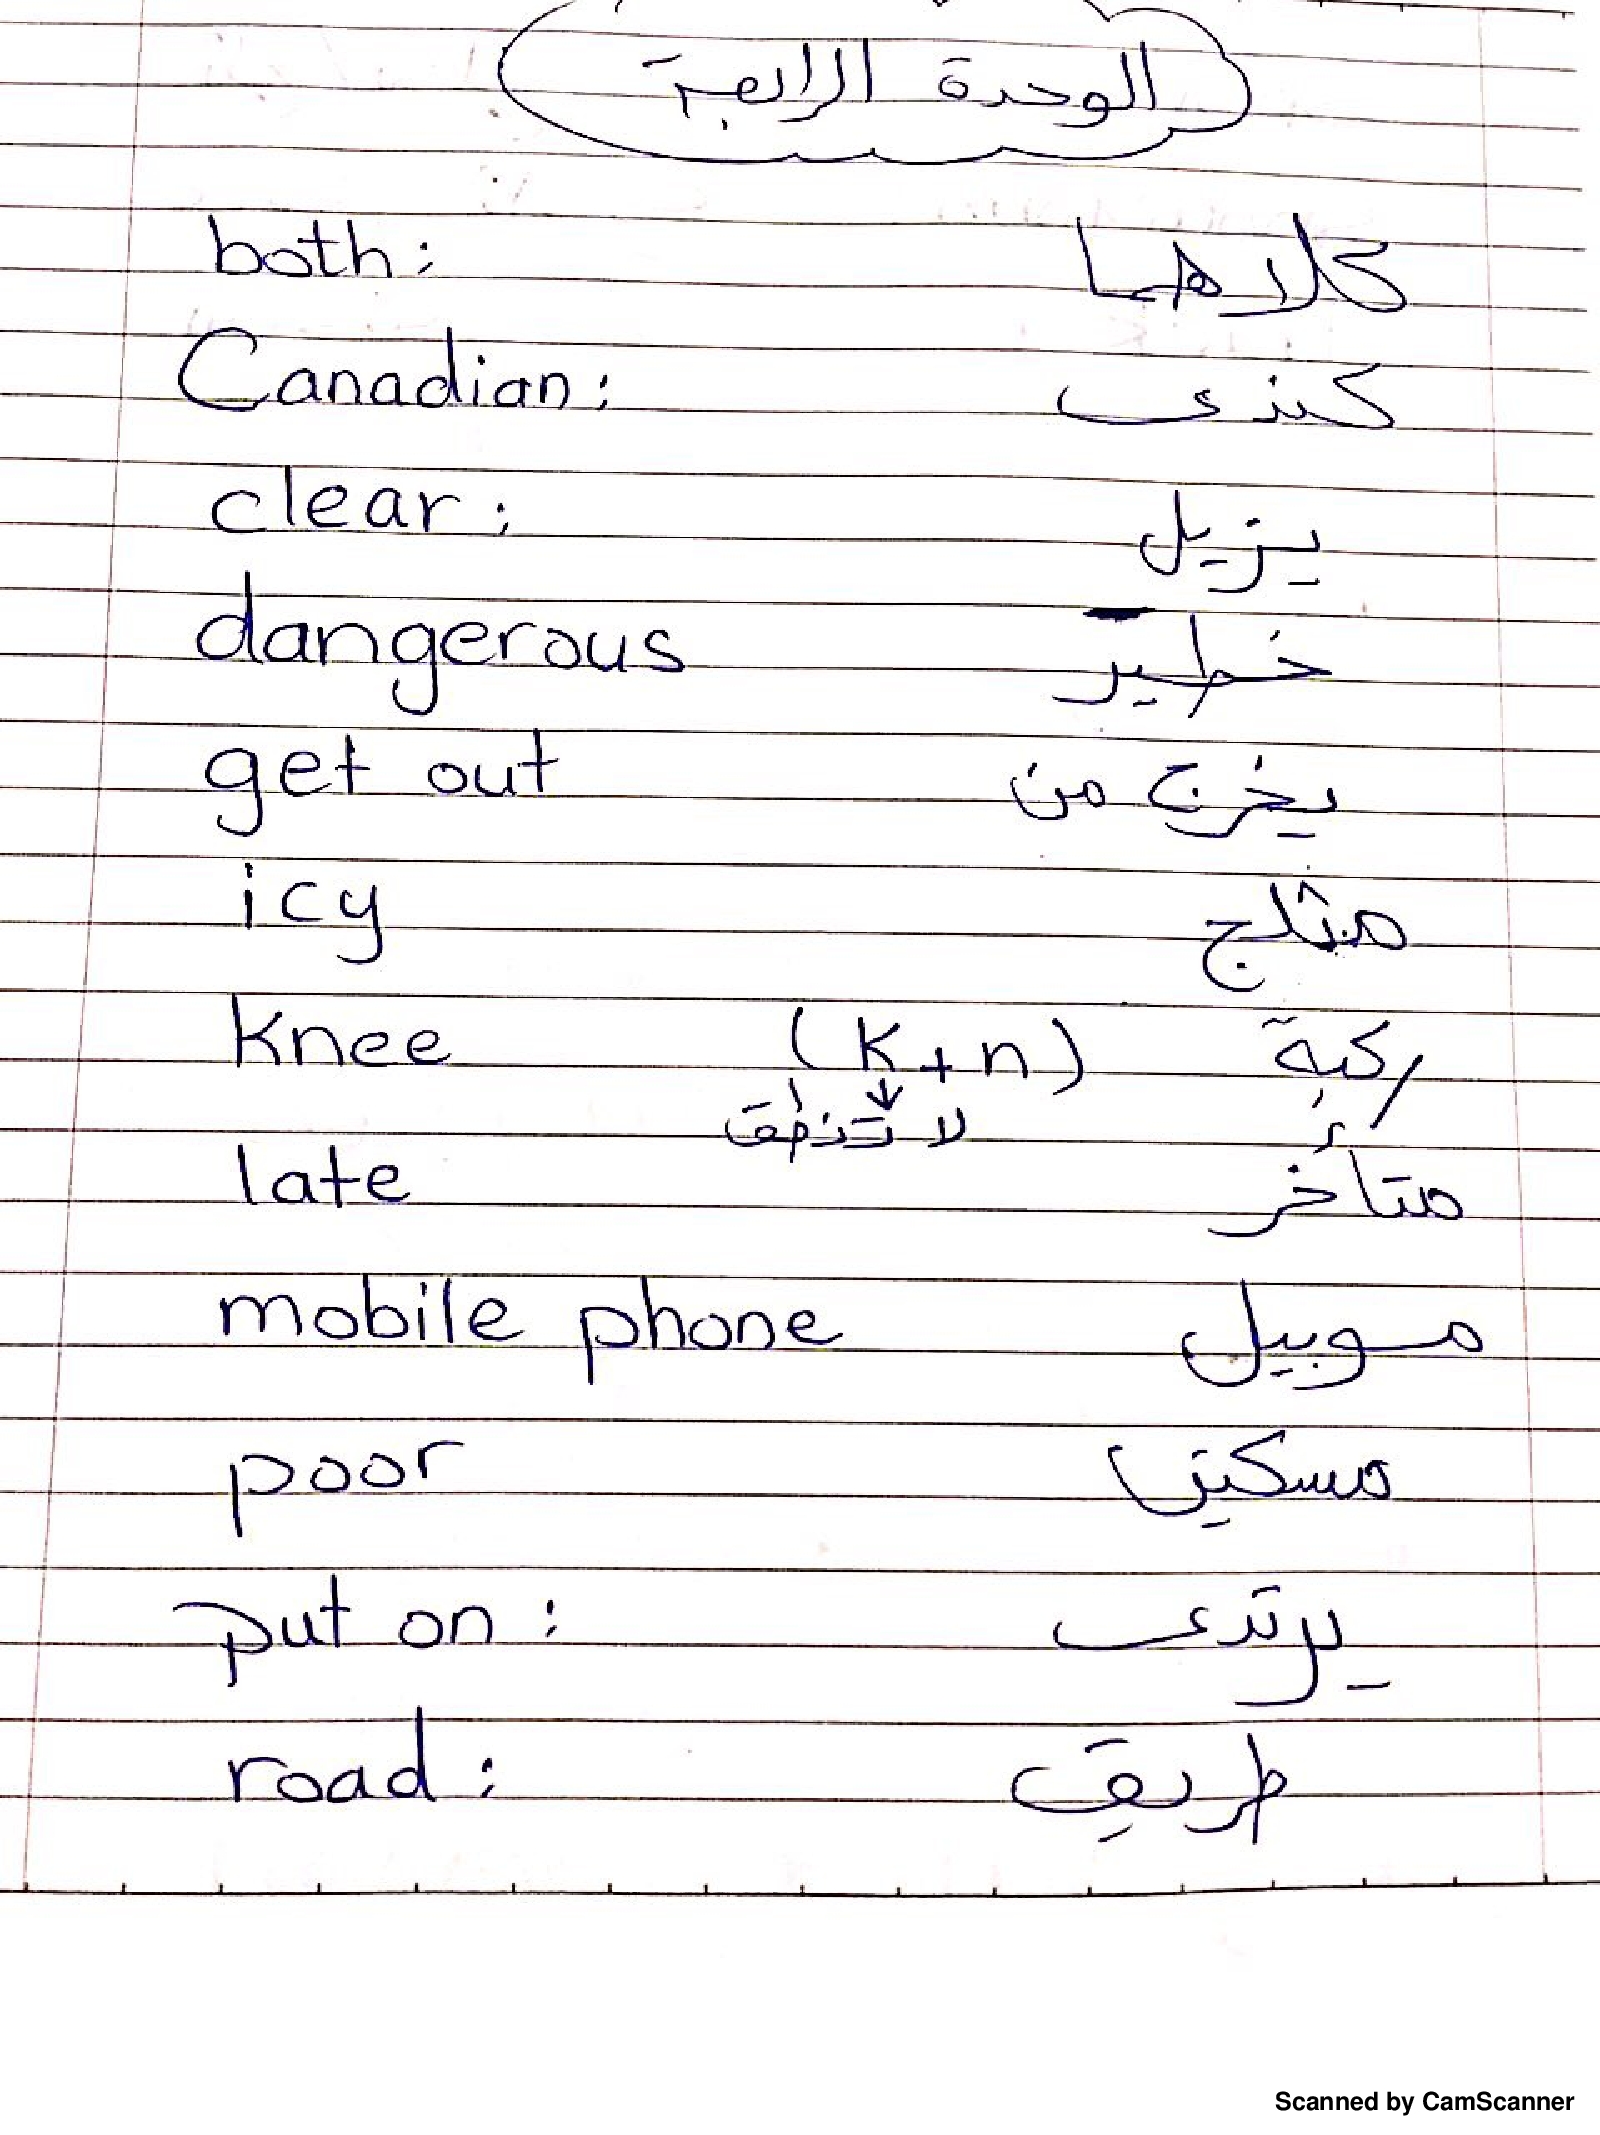 الوحدة الرابعة
both: كلاهما
Canadian: كندى
clear: يزيل
dangerous خطير
get out يخرج من
icy مثلج
knee (k+n) ركبة
لا تنطق
late متأخر
mobile phone موبيل
poor مسكين
put on: يرتدى
road: طريق
Scanned by CamScanner